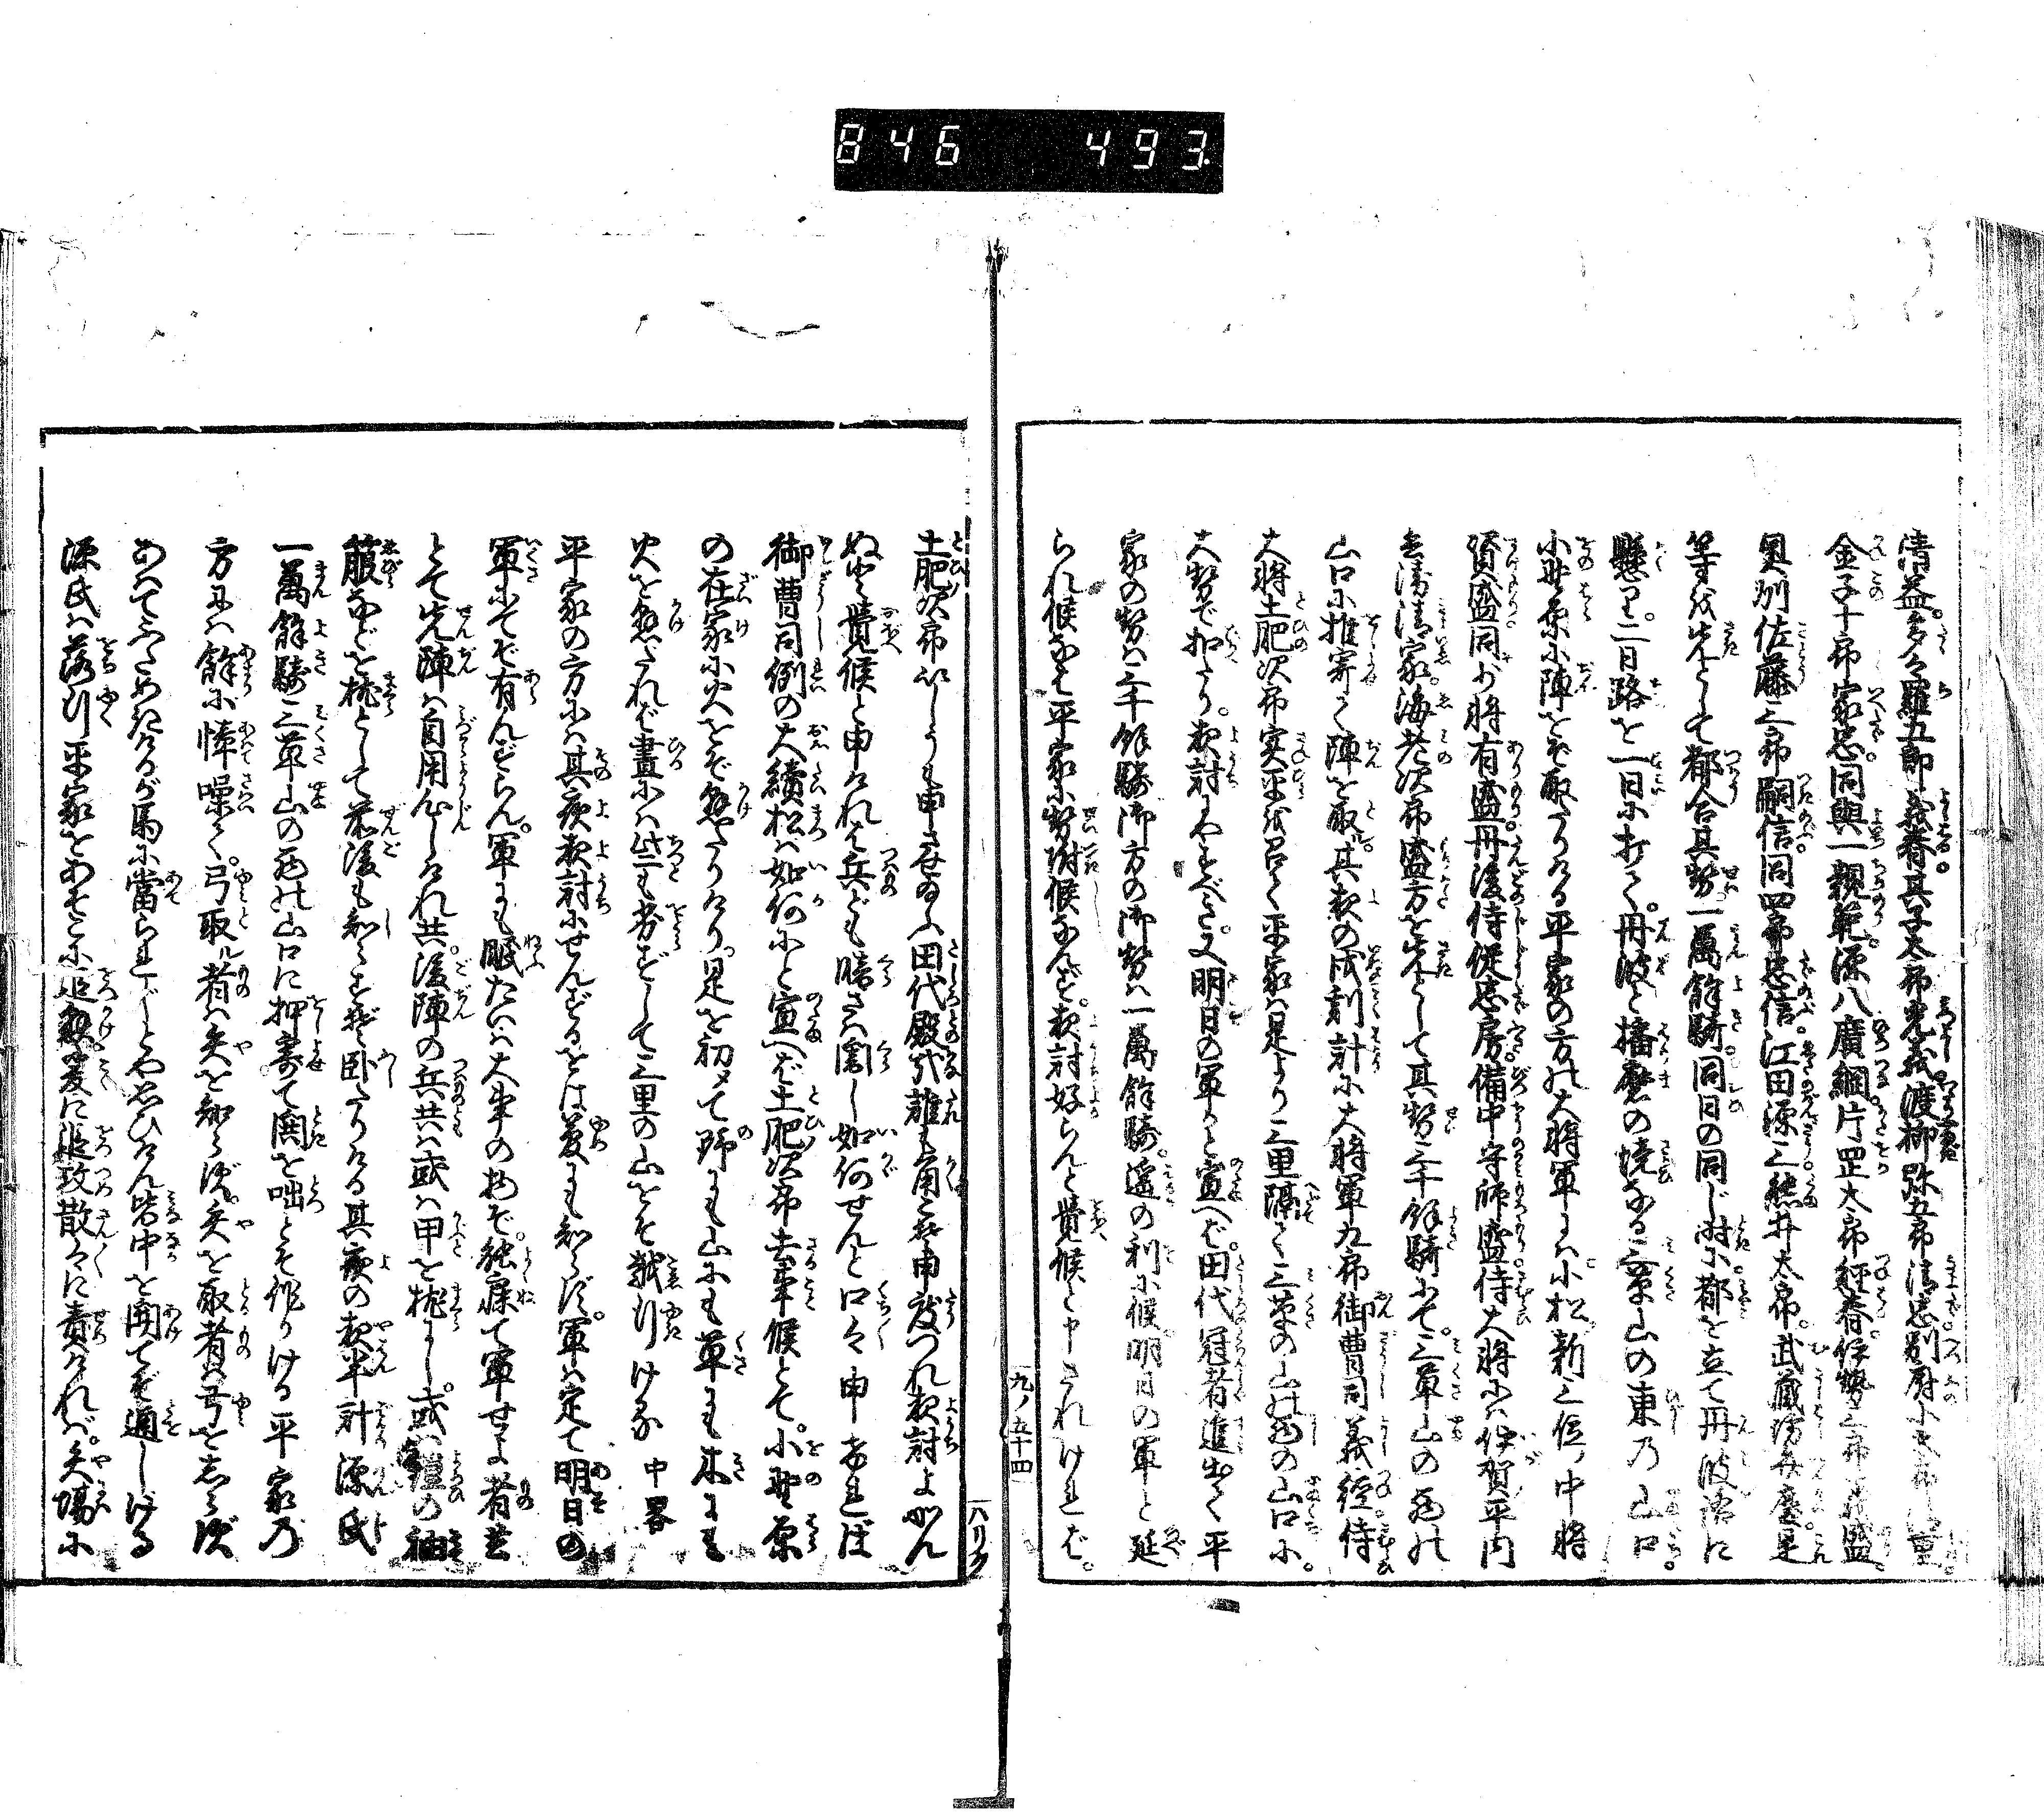 846 493
清益。多々羅五郎義春。其子太郎光義渡柳弥五郎清忠別府小太郎清重。
金子十郎家忠。同與一親範。源八廣綱。片罡太郎經春。伊勢三郎義盛
奥州佐藤三郎嗣信。同四郎忠信。江田源三。熊井太郎。武藏坊弁慶是
等を先として都合其勢一萬餘騎。同日の同じ時に。都を立て丹波路に
懸り。二日路を一日に打て。丹波と播磨の境なる三草山の東乃山口。
小野原に陣をぞ取たりける平家の方の大將軍には。小松新三位ノ中將
資盛。同少將有盛。丹後侍従忠房。備中守師盛。侍大將には伊賀平内
兵衛清家。海老次郎盛方を先として其勢三千餘騎にて。三草山の西の
山口に推寄て陣を取。其夜の戌刻計に大將軍九郎御曹司義經。侍
大將土肥次郎実平を召て平家は是より三里隔て三草の山の西の山口に。
大勢で扣たり。夜討にやすべき。又明日の軍かと宣へば。田代冠者進出て平
家の勢は三千餘騎御方の御勢は一萬餘騎。遥の利に候。明日の軍と延
られ候なば平家に勢附候なんず。夜討好らんと覺候と申されければ。
九ノ五十四
土肥次郎いしうも申させ給ふ田代殿哉誰も角こそ申度つれ夜討よかん
ぬと覺候と申ければ兵ども暗さは闇し如何せんと口々申ければ
御曹司例の大續松は如何にと宣へば土肥次郎去事候とて。小野原
の在家に火をぞ懸たりける。是を初メて野にも山にも草にも木にも
火を懸たれば晝には些も劣ずして三里の山をぞ越行ける 中畧
平家の方には其夜夜討にせんずるをば夢にも知らず。軍は定て明日の
軍にてぞ有んずらん。軍にも眠たいは大事の物ぞ。能寐て軍せよ者共
とて先陣は自用心しけれ共。後陣の兵共は或は甲を枕にし。或は鎧の袖
箙などを枕として前後も知らずぞ臥たりける其夜の夜半計源氏
一萬餘騎三草山の西の山口に押寄て鬨を咄とぞ作りける平家乃
方には餘に憞噪て。弓取ル者は矢を知らず。矢を取者は弓をしらず
あはてふためきけるが馬に當られじとや思ひけん皆中を開てぞ通しける
源氏は落行平家をあそこに追懸爰に追攻散々に責ければ。矢場に